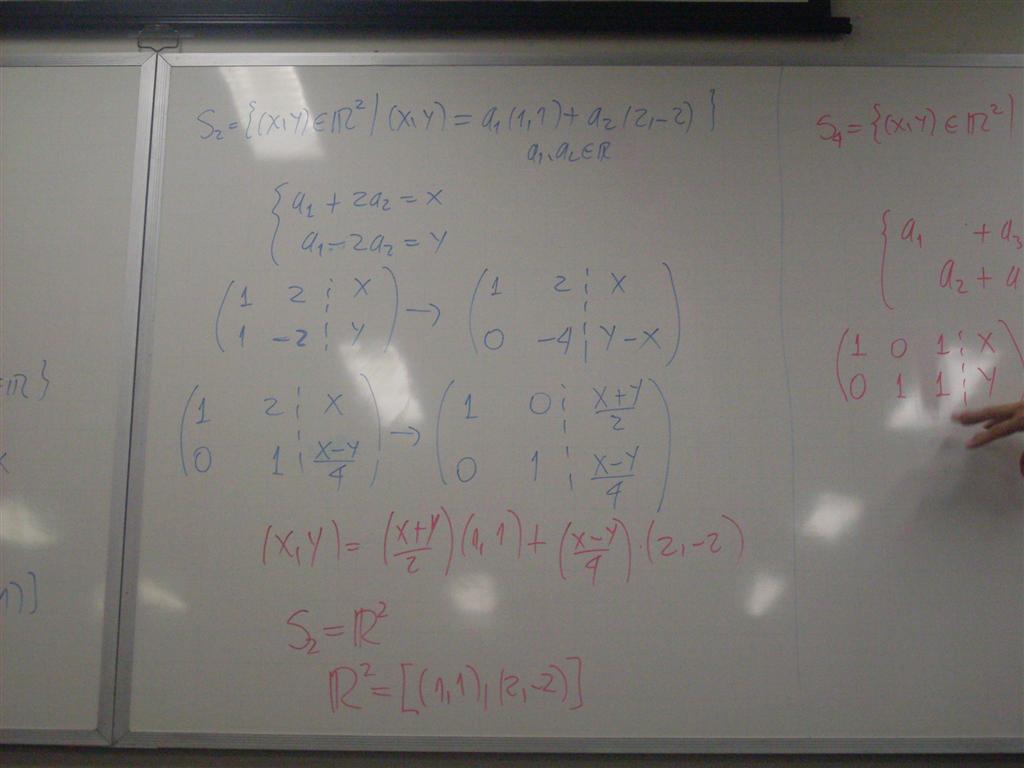 S₂ = {(x,y) ∈ ℝ² | (x,y) = a₁(1,1) + a₂(2,-2)}
a₁, a₂ ∈ ℝ
{ a₁ + 2a₂ = x
a₁ - 2a₂ = y
( 1 2 ¦ x ) → ( 1 2 ¦ x )
( 1 -2 ¦ y ) ( 0 -4 ¦ y-x )
( 1 2 ¦ x ) → ( 1 0 ¦ (x+y)/2 )
( 0 1 ¦ (x-y)/4 ) ( 0 1 ¦ (x-y)/4 )
(x,y) = ((x+y)/2)(1,1) + ((x-y)/4)·(2,-2)
S₂ = ℝ²
ℝ² = [(1,1),(2,-2)]
S₄ = {(x,y) ∈ ℝ² |
{ a₁ + a₃
a₂ + a
( 1 0 1 ¦ x )
( 0 1 1 ¦ y )
ℝ}
)]